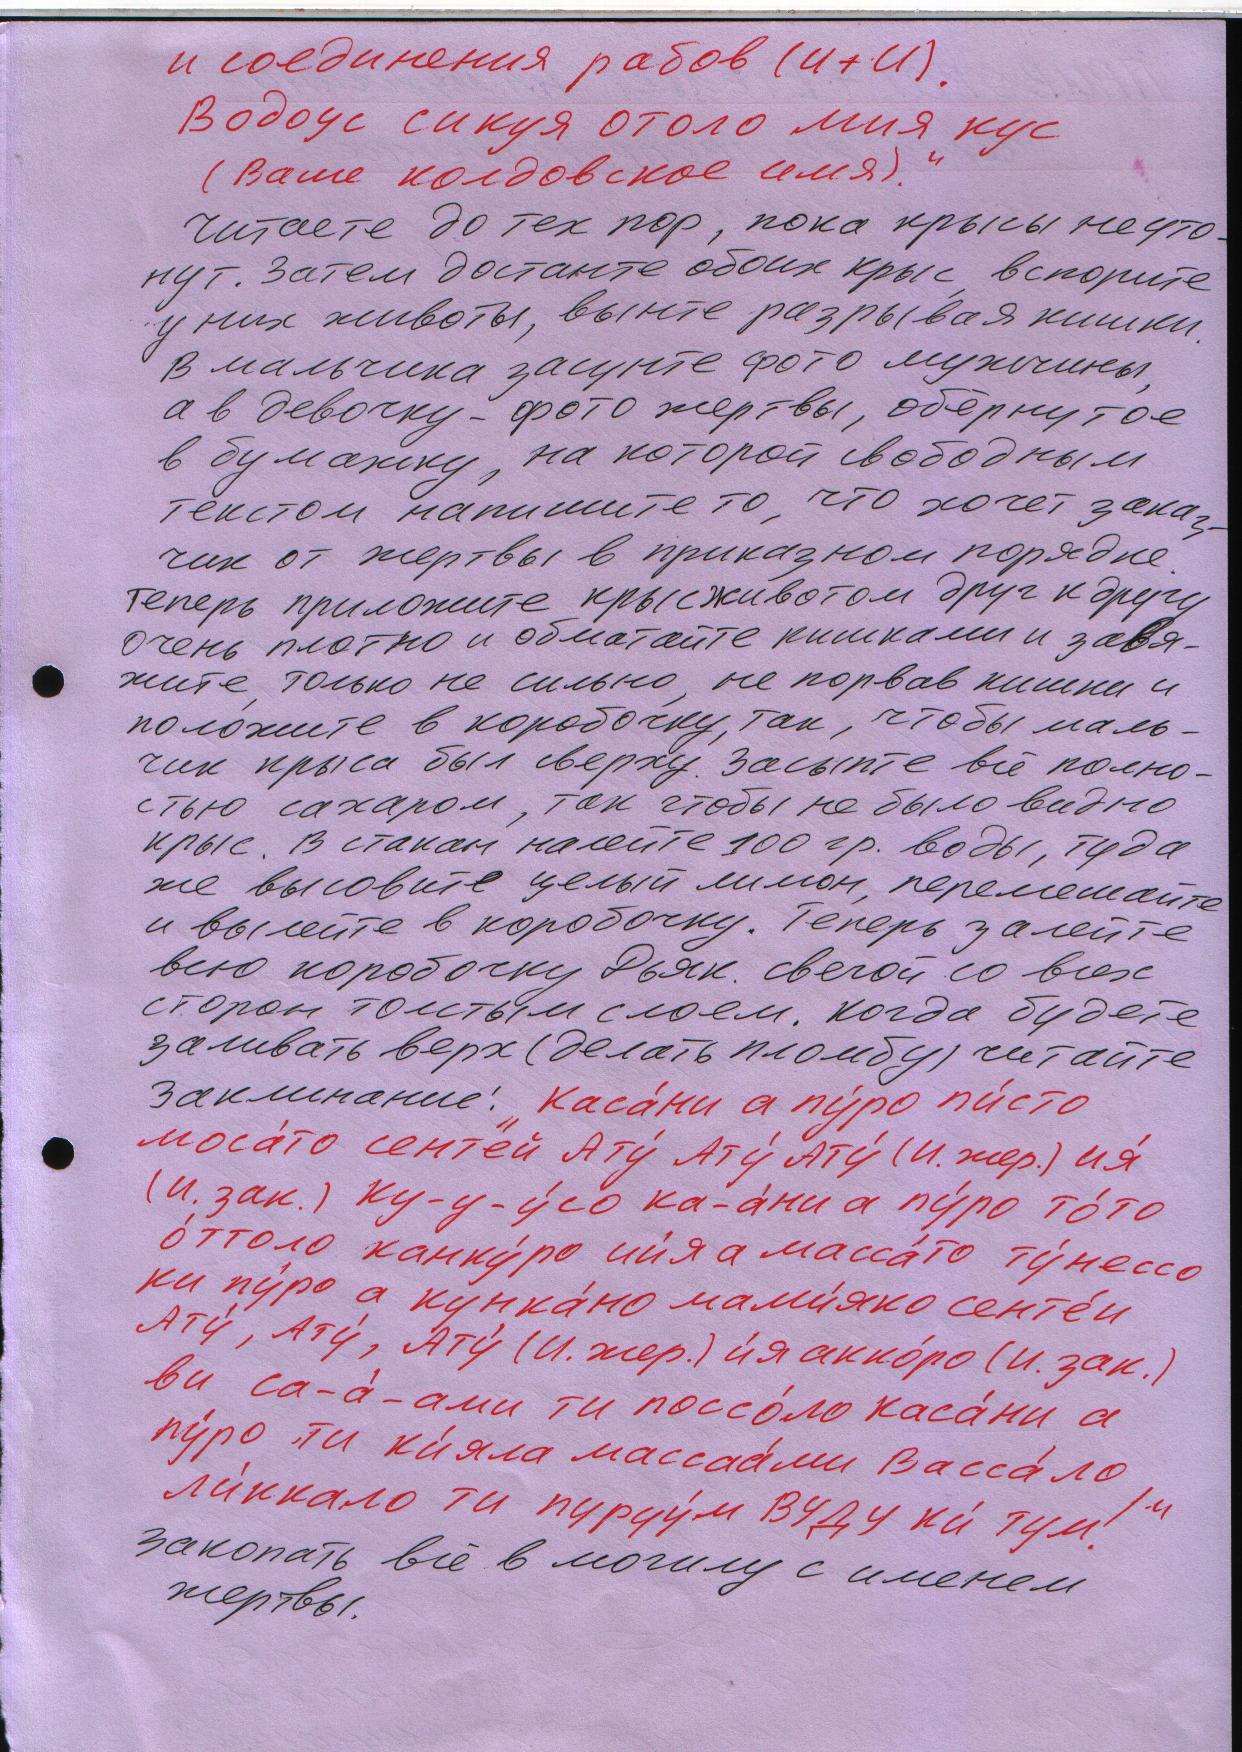 и соединения рабов (И+И).
Водоус сикуя отоло мия кус
(Ваше колдовское имя)."
Читаете до тех пор, пока крысы не уто-
нут. Затем достанте обоих крыс, вспорите
у них животы, вынте разрывая кишки.
В мальчика засунте фото мужчины,
а в девочку - фото жертвы, обёрнутое
в бумажку, на которой свободным
текстом напишите то, что хочет заказ-
чик от жертвы в приказном порядке.
Теперь приложите крыс животом друг к другу
очень плотно и обматайте кишками и завя-
жите, только не сильно, не порвав кишки и
положите в коробочку, так, чтобы маль-
чик крыса был сверху. Засыпте всё полно-
стью сахаром, так чтобы не было видно
крыс. В стакан налейте 100 гр. воды, туда
же высовите целый лимон, перемешайте
и вылейте в коробочку. Теперь залейте
всю коробочку Дьяк. свечой со всех
сторон толстым слоем. Когда будете
заливать верх (делать пломбу) читайте
Заклинание: „Каса́ни а пу́ро пи́сто
моса́то сенте́й Ату́ Ату́ Ату́ (И. жер.) ия́
(И. зак.) Ку-у-у́со ка-а́ни а пу́ро то́то
о́ттоло канку́ро ии́я а масса́то ту́нессо
ки пу́ро а кунка́но мами́яко сенте́и
Ату́, Ату́, Ату́ (И. жер.) и́я акко́ро (И. зак.)
ви са-а́-ами ти поссо́ло каса́ни а
пу́ро ти ки́яла массаа́ми Васса́ло
ли́ккало ти пуруу́м ВУДУ ки́ тум!"
Закопать всё в могилу с именем
жертвы.